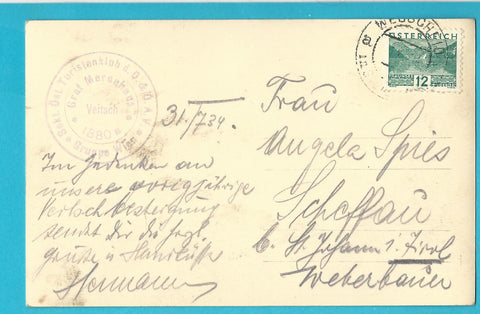 Sekt. Öst. Touristenklub d. D. & Ö. A. V.
Graf Meranhaus
Veitsch
1880 m
Gruppe Wien
ÖSTERREICH
12
31./7 34.
Im Gedenken an
unsere vorigjährige
besteigung
sendet Dir die
grüße u. Handküsse
Hermann
Frau
Angela Spies
Scheffau
b. St. Johann i. Tirol
Weberbauer